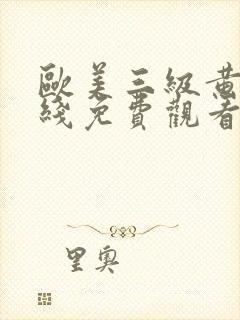 歐美三級黃
綫免費觀看
里奧